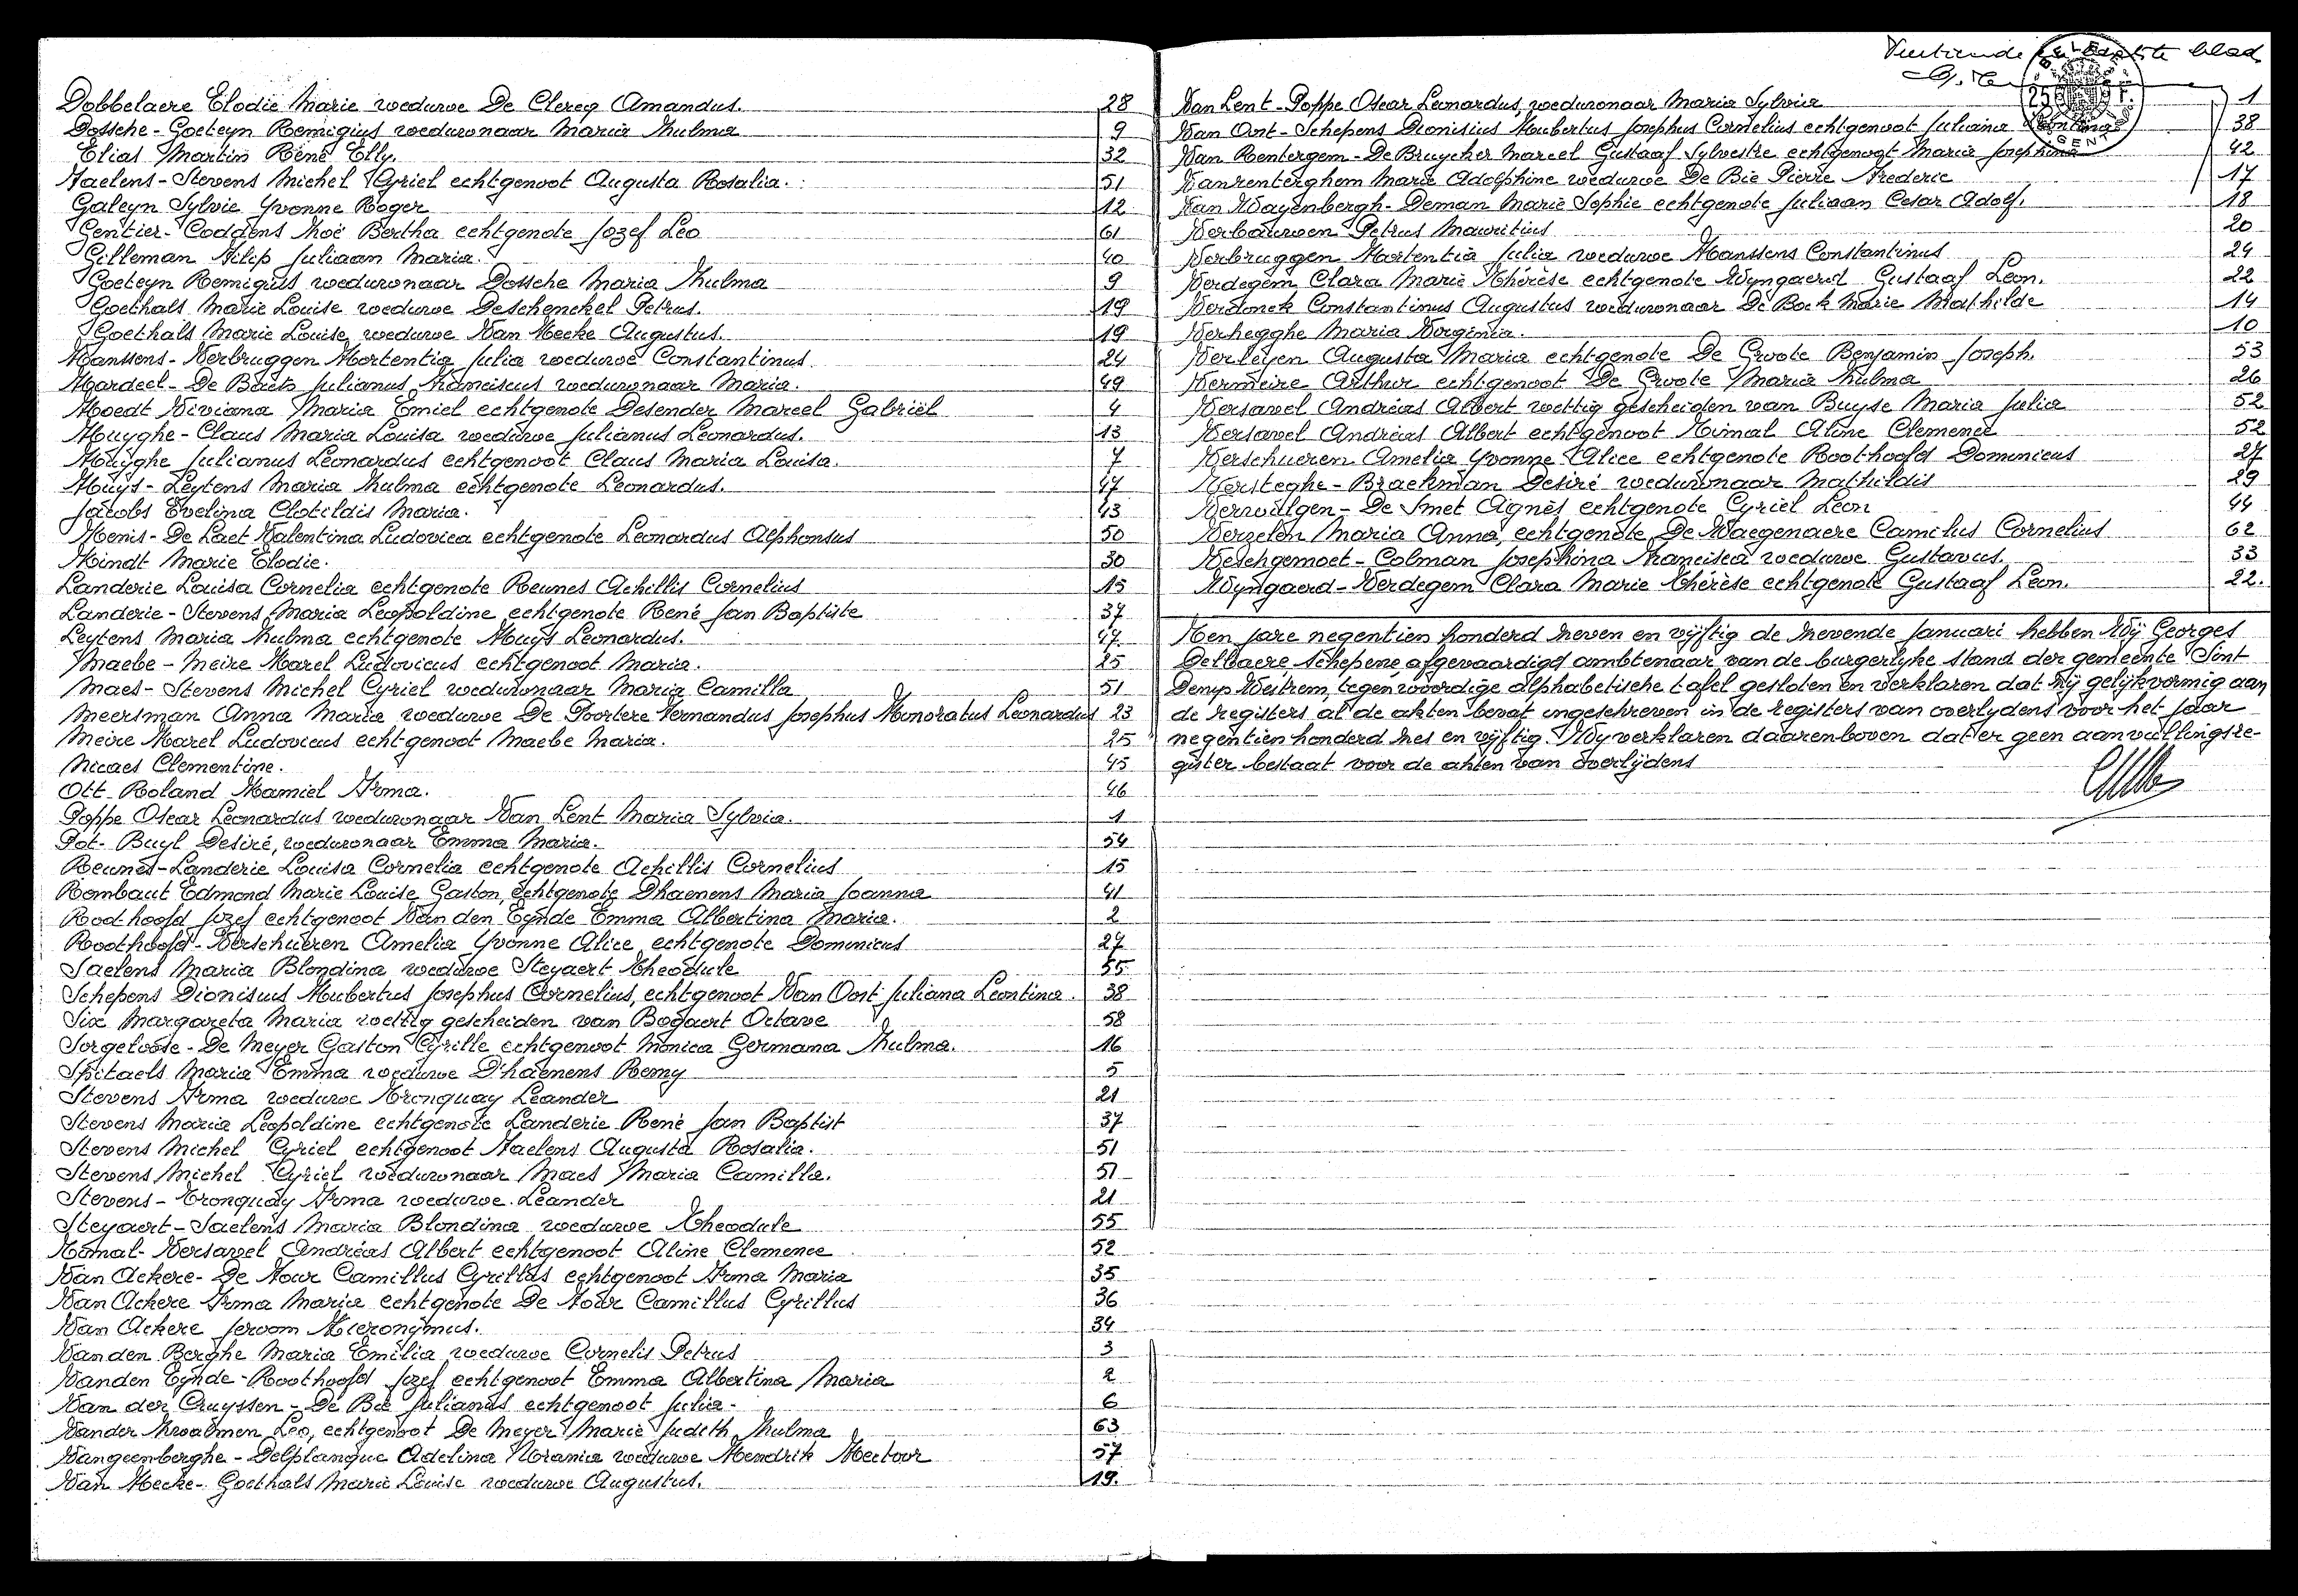 Dobbelaere Elodie Marie weduwe De Clercq Amandus. 28
Dossche-Goeteyn Remigius weduwnaar Maria Zulma 9
Elias Martin René Elly. 32
Faelens-Stevens Michel Cyriel echtgenoot Augusta Rosalia. 51
Galeyn Sylvie Yvonne Roger 12
Gentier-Coddens Zoë Bertha echtgenote Jozef Leo 61
Gilleman Filip Juliaan Maria. 40
Goeteyn Remigius weduwnaar Dossche Maria Zulma 9
Goethals Marie Louise weduwe Deschenckel Petrus. 19
Goethals Marie Louise weduwe Van Hecke Augustus. 19
Hanssens-Verbruggen Hortentia Julia weduwe Constantinus 24
Hardeel-De Baets Julianus Franciscus weduwnaar Maria. 49
Hoedt Viviana Maria Emiel echtgenote Desender Marcel Gabriël 4
Huyghe-Claus Maria Louisa weduwe Julianus Leonardus. 13
Huyghe Julianus Leonardus echtgenoot Claus Maria Louisa. 7
Huys-Leytens Maria Zulma echtgenote Leonardus. 47
Jacobs Evelina Clotildis Maria. 43
Kenis-De Laet Valentina Ludovica echtgenote Leonardus Alphonsus 50
Kindt Marie Elodie. 30
Landerie Louisa Cornelia echtgenote Reunes Achillis Cornelius 15
Landerie-Stevens Maria Leopoldine echtgenote René Jan Baptiste 37
Leytens Maria Zulma echtgenote Huys Leonardus. 47.
Maebe-Meire Karel Ludovicus echtgenoot Maria. 25
Maes-Stevens Michel Cyriel weduwnaar Maria Camilla 51
Meersman Anna Maria weduwe De Poortere Fernandus Josephus Honoratus Leonardus 23
Meire Karel Ludovicus echtgenoot Maebe Maria. 25
Nicaes Clementine. 45
Ott Roland Kamiel Irma. 46
Poppe Oscar Leonardus weduwnaar Van Lent Maria Sylvia. 1
Pot-Buyl Desiré, weduwnaar Emma Maria. 54
Reunes-Landerie Louisa Cornelia echtgenote Achillis Cornelius 15
Rombaut Edmond Marie Louise Gaston, echtgenote Dhaenens Maria Joanna 41
Roothoofd Jozef echtgenoot Van den Eynde Emma Albertina Maria. 2
Roothoofd-Verschueren Amelia Yvonne Alice echtgenote Dominicus 27
Saelens Maria Blondina weduwe Steyaert Theodule 55
Schepens Dionisius Hubertus Josephus Cornelius, echtgenoot Van Oost Juliana Leontina. 38
Six Margareta Maria wettig gescheiden van Bogaert Octave 58
Sorgeloose-De Meyer Gaston Cyrille echtgenoot Monica Germana Zulma. 16
Spitaels Maria Emma weduwe D'haenens Remy 5
Stevens Irma weduwe Tronquay Leander 21
Stevens Maria Leopoldine echtgenote Landerie René Jan Baptist 37
Stevens Michel Cyriel echtgenoot Faelens Augusta Rosalia. 51
Stevens Michel Cyriel weduwnaar Maes Maria Camilla. 51
Stevens-Tronquay Irma weduwe Leander 21
Steyaert-Saelens Maria Blondina weduwe Theodule 55
Timal-Versavel Andréas Albert echtgenoot Aline Clemence 52
Van Ackere-De Four Camillus Cyrillus echtgenoot Irma Maria 35
Van Ackere Irma Maria echtgenote De Four Camillus Cyrillus 36
Van Ackere Jeroom Hieronymus. 34
Van den Berghe Maria Emilia weduwe Cornelis Petrus 3
Vanden Eynde-Roothoofd Jozef echtgenoot Emma Albertina Maria 2
Van der Cruyssen-De Bie Julianus echtgenoot Julia. 6
Vander Zwalmen Leo, echtgenoot De Meyer Marie Judith Zulma 63
Vangeenberghe-Delplanque Adelina Urania weduwe Hendrik Hector 57
Van Hecke-Goethals Marie Louise weduwe Augustus. 19.
blad
BELGIE
25 fr.
GENT
Van Lent-Poppe Oscar Leonardus, weduwnaar Maria Sylvia 1
Van Oost-Schepens Dionisius Hubertus Josephus Cornelius echtgenoot Juliana Leontina 38
Van Rentergem-De Bruycker Marcel Gustaaf Sylvestre echtgenoot Maria Josephina 42
Vanrenterghem Marie Adolphine weduwe De Bie Pierre Frederic 17
Van Wayenbergh-Deman Marie Sophie echtgenote Juliaan Cesar Adolf. 18
Verbauwen Petrus Mauritius 20
Verbruggen Hortentia Julia weduwe Hanssens Constantinus 24
Verdegem Clara Marie Thérèse echtgenote Wyngaerd Gustaaf Leon. 22
Verdonck Constantinus Augustus weduwnaar De Bock Marie Mathilde 14
Verhegghe Maria Virginia. 10
Verleyen Augusta Maria echtgenote De Groote Benjamin Joseph. 53
Vermeire Arthur echtgenoot De Groote Maria Zulma 26
Versavel Andréas Albert wettig gescheiden van Buyse Maria Julia 52
Versavel Andréas Albert echtgenoot Timal Aline Clemence 52
Verschueren Amelia Yvonne Alice echtgenote Roothoofd Dominicus 27
Versteghe-Braekman Desiré weduwnaar Mathildis 29
Vervulgen-De Smet Agnès echtgenote Cyriel Leon 44
Verzelen Maria Anna, echtgenote De Waegenaere Camilus Cornelius 62
Weschgemoet-Colman Josephina Francisca weduwe Gustavus. 33
Wyngaerd-Verdegem Clara Marie Thérèse echtgenote Gustaaf Leon. 22.
Ten jare negentien honderd zeven en vyftig de zevende Januari hebben Wÿ Georges
Delbaere, Schepene afgevaardigd ambtenaar van de burgerlyke stand der gemeente Sint
Denys Westrem, tegenwoordige alphabetische tafel gesloten en verklaren dat zÿ gelijkvormig aan
de registers al de akten bevat ingeschreven in de registers van overlydens voor het jaar
negentien honderd zes en vyftig. Wy verklaren daarenboven dat er geen aanvullingsre-
gister bestaat voor de akten van overlijdens